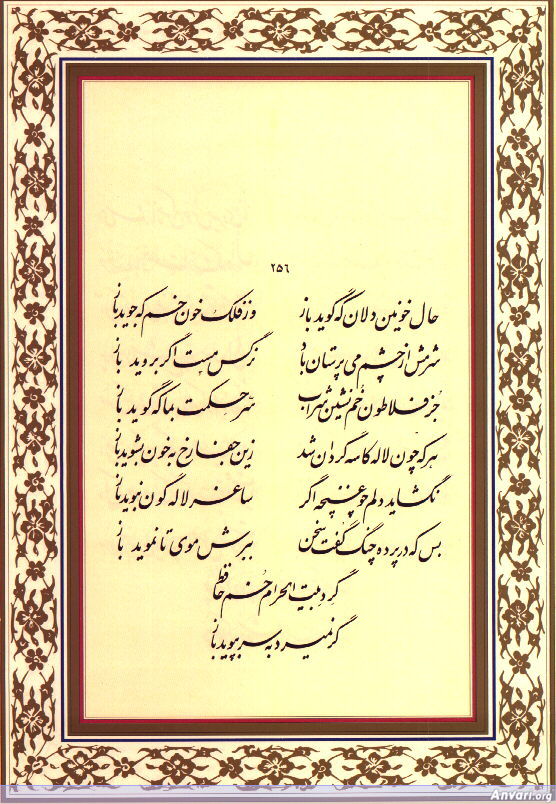 ۲۵۶
حال خونین دلان که گوید باز وز فلک خون خم که جوید باز
شرمش از چشم می پرستان باد نرگس مست اگر بروید باز
جز فلاطون خم نشین شراب سر حکمت بما که گوید باز
هرکه چون لاله کاسه گردان شد زین جفا رخ به خون بشوید باز
نگشاید دلم چو غنچه اگر ساغر لاله گون نبوید باز
بس که در پرده چنگ گفت سخن ببرش موی تا نموید باز
گرد بیت الحرام خم حافظ
گر نمیرد به سر بپوید باز
Anvari.org